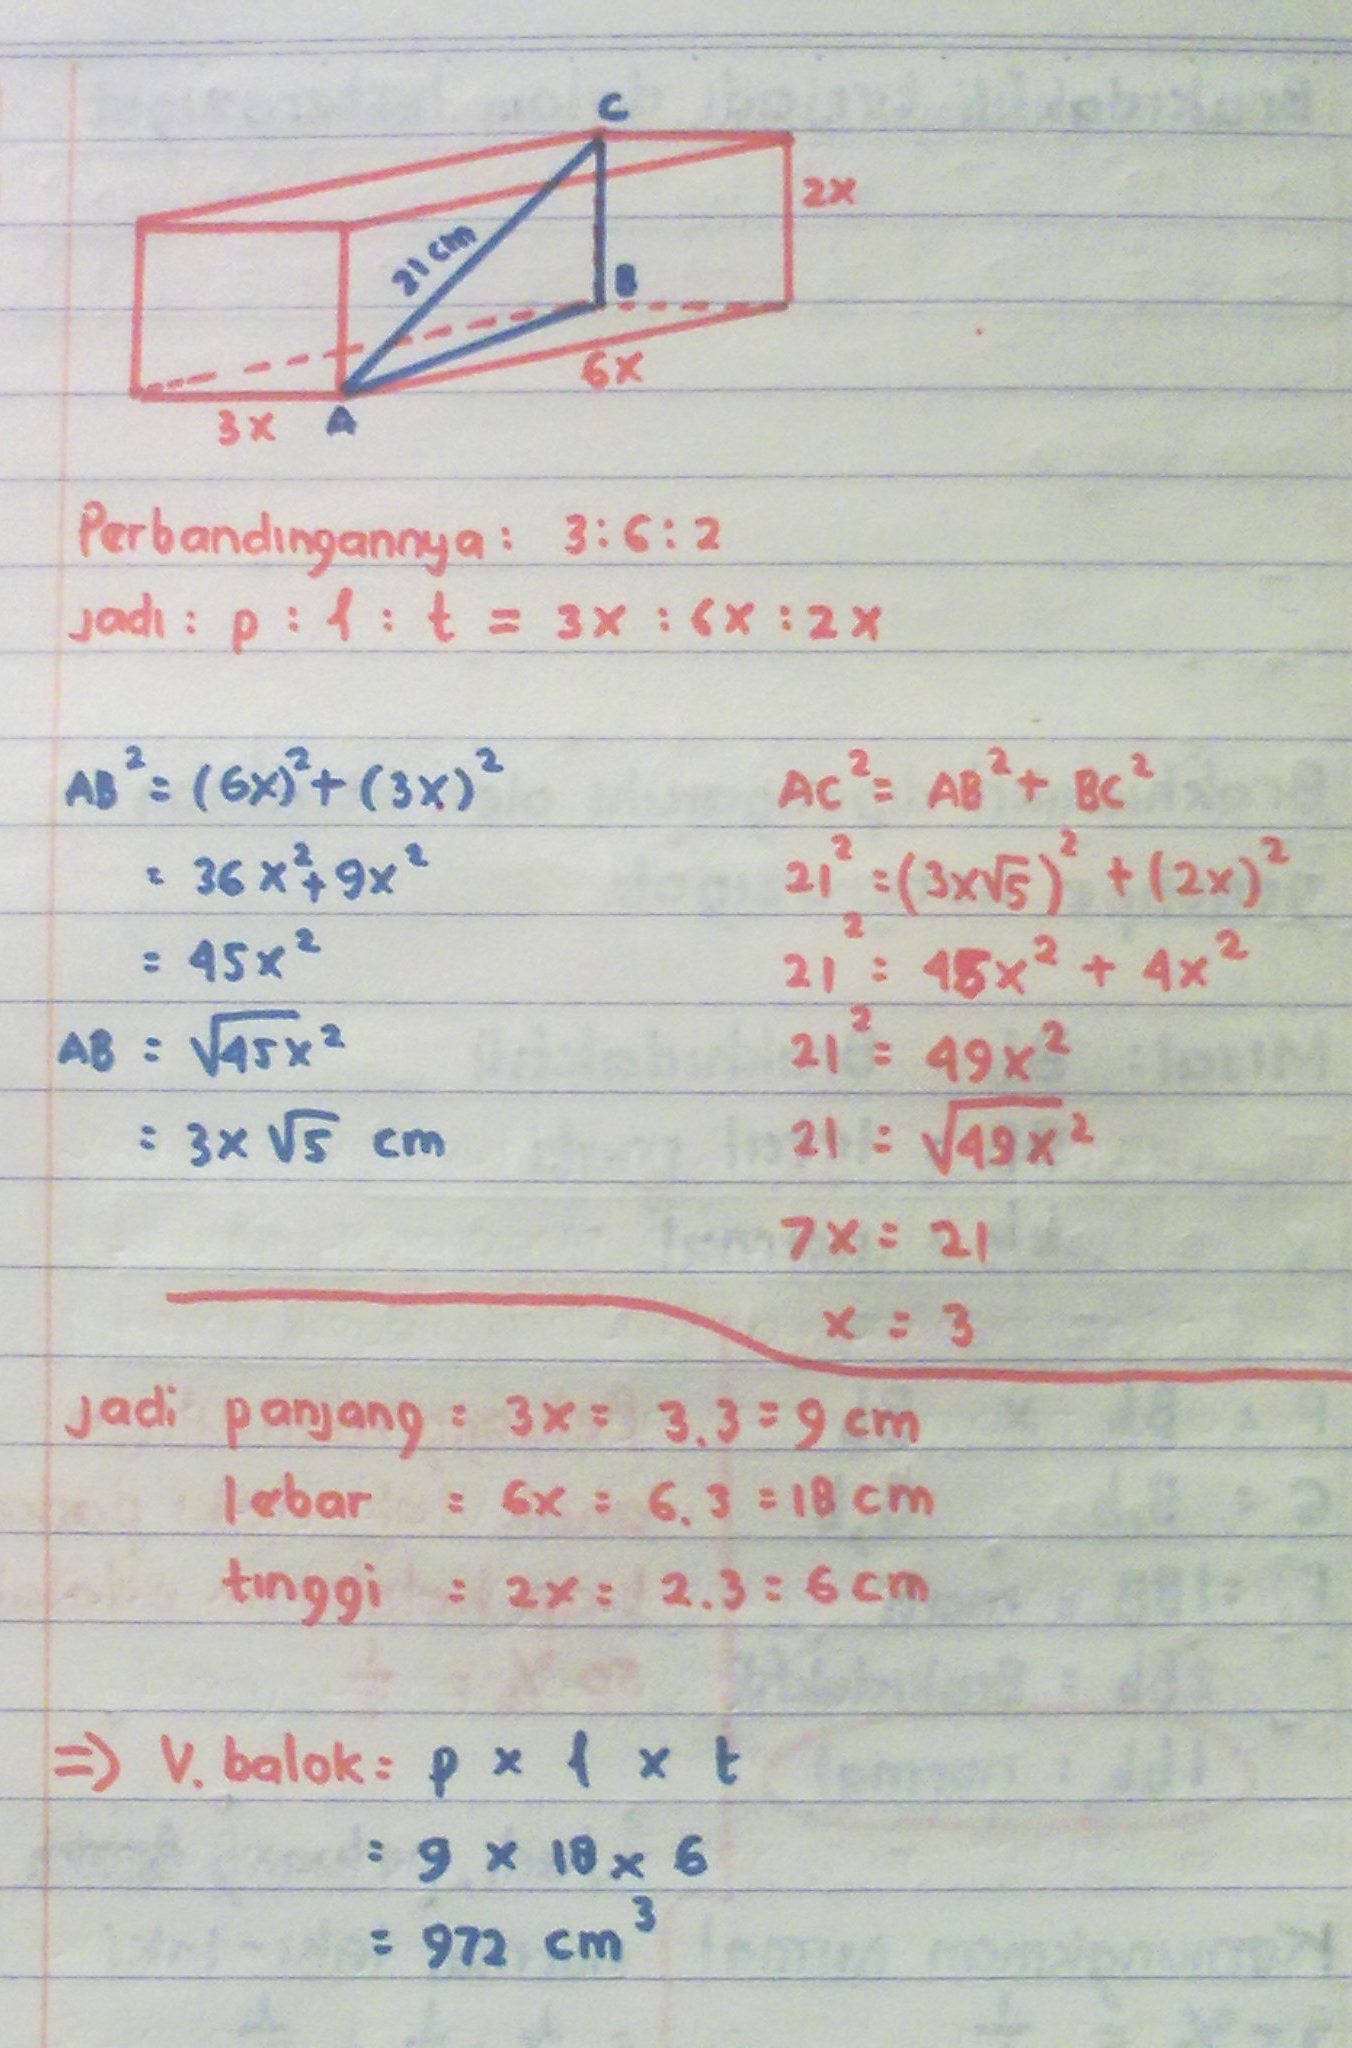 C
2x
21 cm
B
6x
3x
A
Perbandingannya : 3:6:2
jadi : p : l : t = 3x : 6x : 2x
AB² = (6x)² + (3x)²
= 36x² + 9x²
= 45x²
AB = √45x²
= 3x√5 cm
AC² = AB² + BC²
21² = (3x√5)² + (2x)²
21² = 45x² + 4x²
21² = 49x²
21 = √49x²
7x = 21
x = 3
jadi panjang = 3x = 3.3 = 9 cm
lebar = 6x = 6.3 = 18 cm
tinggi = 2x = 2.3 = 6 cm
=> V. balok = p x l x t
= 9 x 18 x 6
= 972 cm³